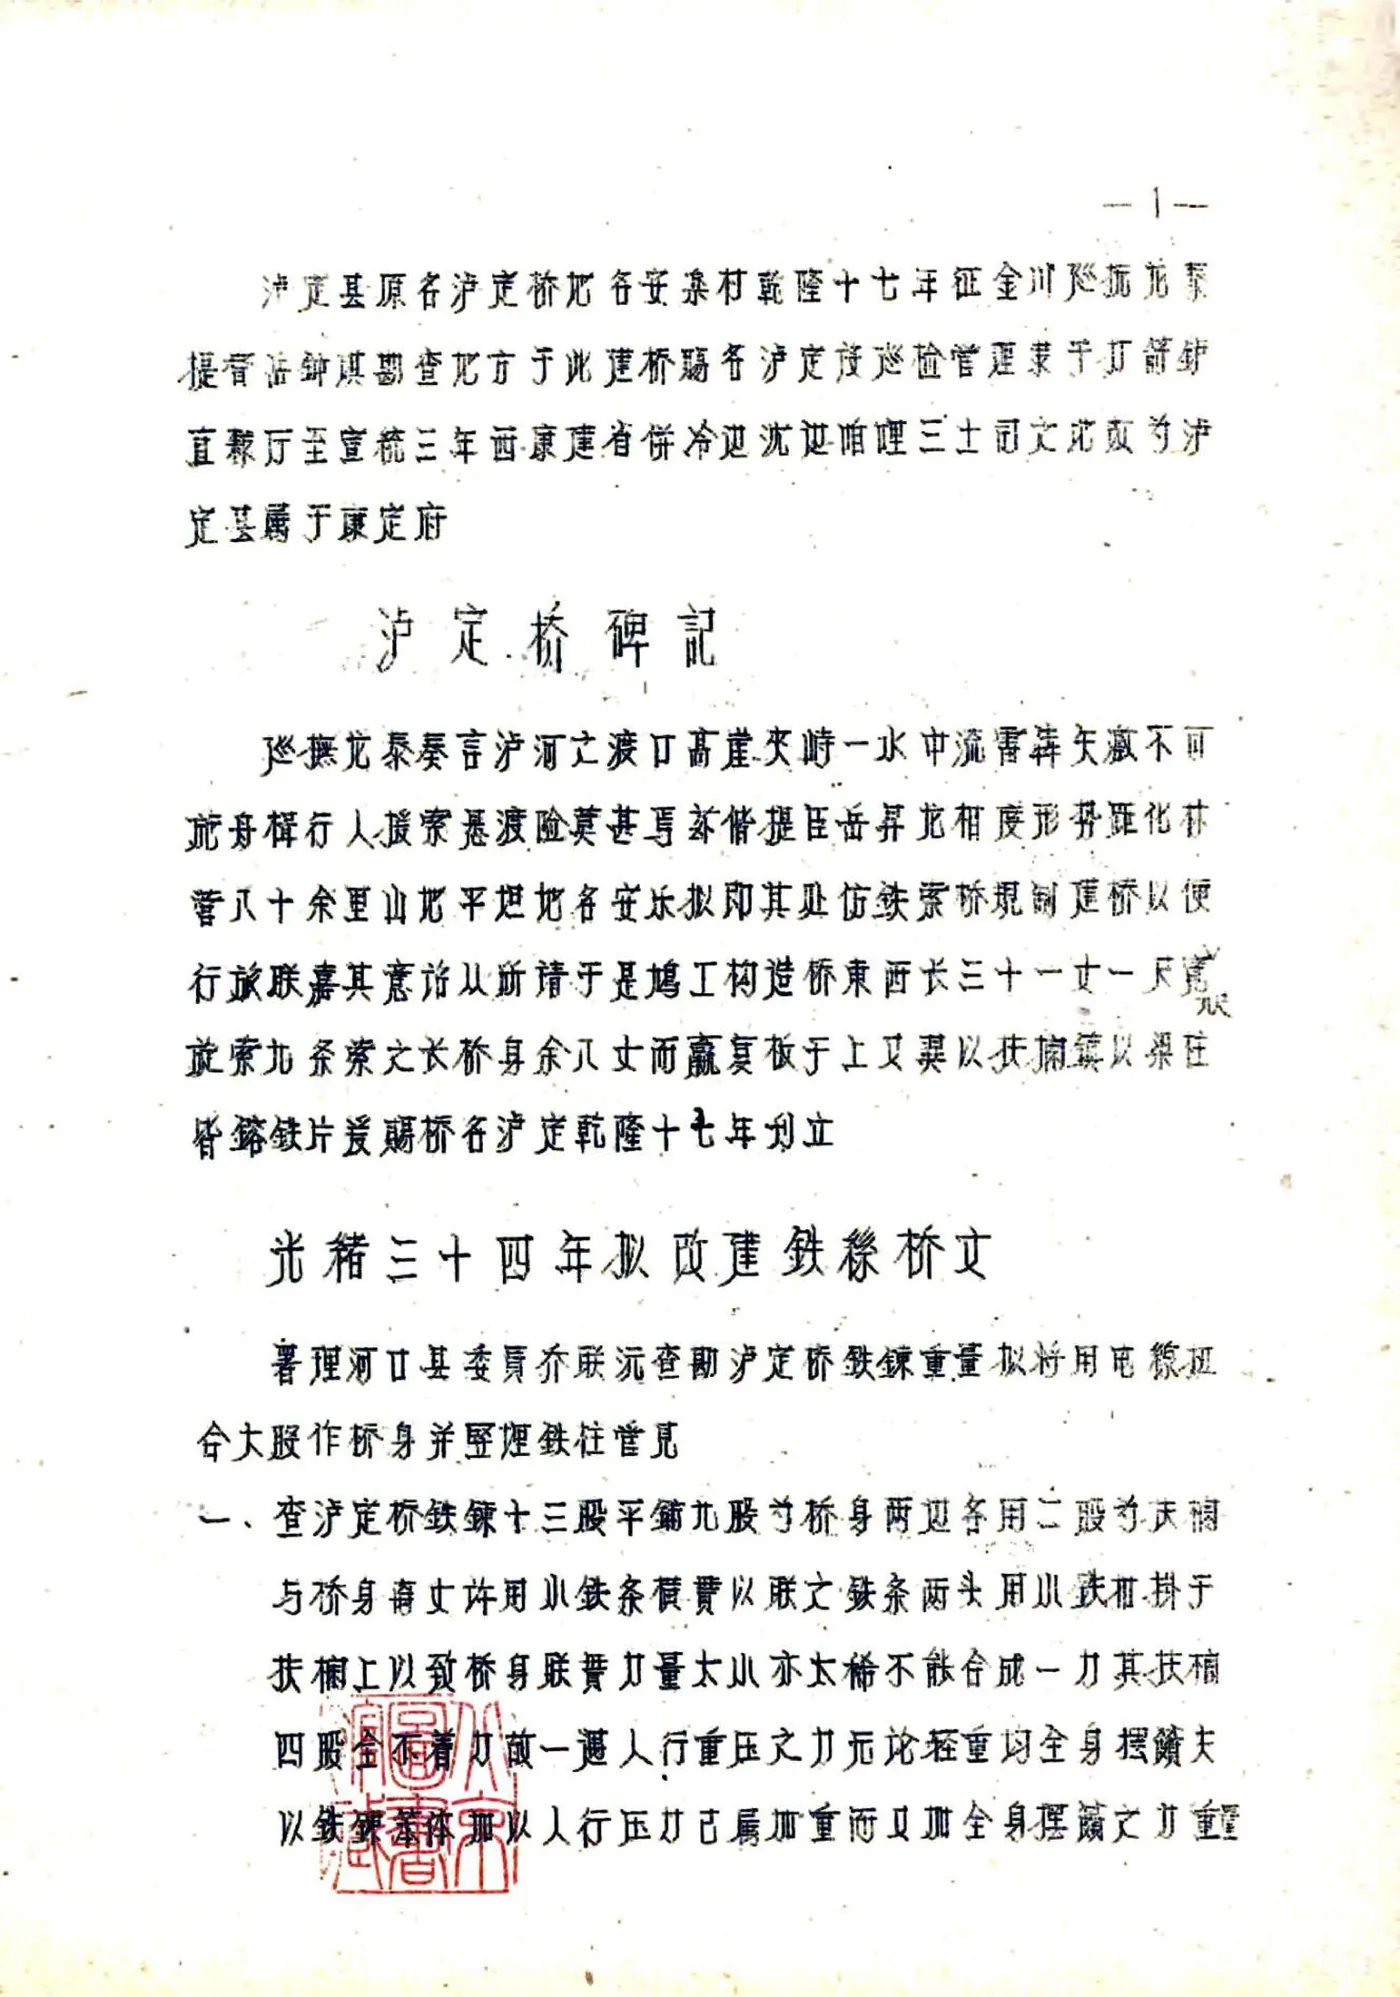 —1—
泸定县原名泸定桥地名安乐村乾隆十七年征金川巡抚龙泰
提督岳钟淇勘查地方于此建桥赐名泸定设巡检管理隶于打箭炉
直隶厅至宣统三年西康建省併冷边沈边咱哩三土司文地改为泸
定县属于康定府
泸定桥碑記
巡撫龙泰奏言泸河之渡口高崖夹峙一水中流雷犇矢激不可
施舟楫行人援索悬渡险莫甚焉兹偕提臣岳昇龙相度形势距化林
营八十余里山地平坦地名安乐拟即其处仿铁索桥規制建桥以便
行旅联嘉其意诒从所请于是鳩工构造桥東西长三十一丈一尺寛九尺
旋索九条索之长桥身余八丈而贏复板于上又翼以扶欄鎮以梁柱
皆鎔铁片援賜桥名泸定乾隆十七年刘立
光緒三十四年拟改建鉄絲桥文
署理河口县委員乔联沅查勘泸定桥鉄鍊重量拟将用电線扭
合大股作桥身并竪埋鉄柱管見
一、查泸定桥鉄鍊十三股平鋪九股为桥身两边各用二股为扶欄
与桥身每丈许用小鉄条横貫以联之鉄条两头用小鉄扣掛于
扶欄上以致桥身联貫力量太小亦太稀不能合成一力其扶欄
四股全不着力故一遇人行重压之力无论轻重均全身摆簸夫
以鉄鍊笨体加以人行压力已属加重而又加全身摆簸之力重量
北京圖書館藏